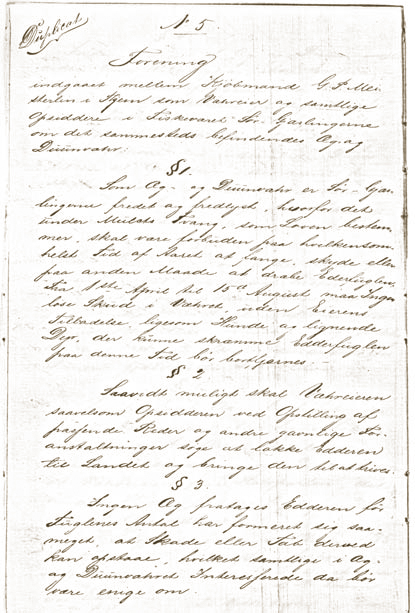 Duplicat
No 5.
Forening
indgaaet mellem Kjøbmand G. P. Mei
sterlin i Kjem som Vahreier og samtlige
Opsiddere i Fiskeværet Sør-Gjæslingerne
om det sammesteds befindendes Æg- og
Duunvahr:
§ 1.
Som Æg- og Duunvahr er Sør-Gjæs-
lingerne fredet og fredlyst, hvorfor det
under Mulkts Tvang, som Loven bestem-
mer, skal være forbuden paa hvilkensom-
helst Tid af Aaret at fange, skyde eller
paa anden Maade at dræbe Ederfuglen.
Fra 1ste April til 15de August maa Ingen
løse Skud i Vahret uden Eierens
Tilladelse, ligesom Hunde og lignende
Dyr, der kunne skræmme Edderfuglen
paa denne Tid bør bortfjernes.
§ 2
Saavidt muligt skal Vahreieren
saavelsom Opsidderen ved Opstilling af
passende Reder og andre gavnlige For-
anstaltninger søge at lokke Edderen
til Landet og bringe den til at trives.
§ 3.
Ingen Æg fratages Edderen før
Fuglenes Antal har formeret sig saa-
meget, at Skade eller Tab derved
kan opstaae, hvilket samtlige i Æg-
og Duunvahret Interesserede da bør
være enige om.